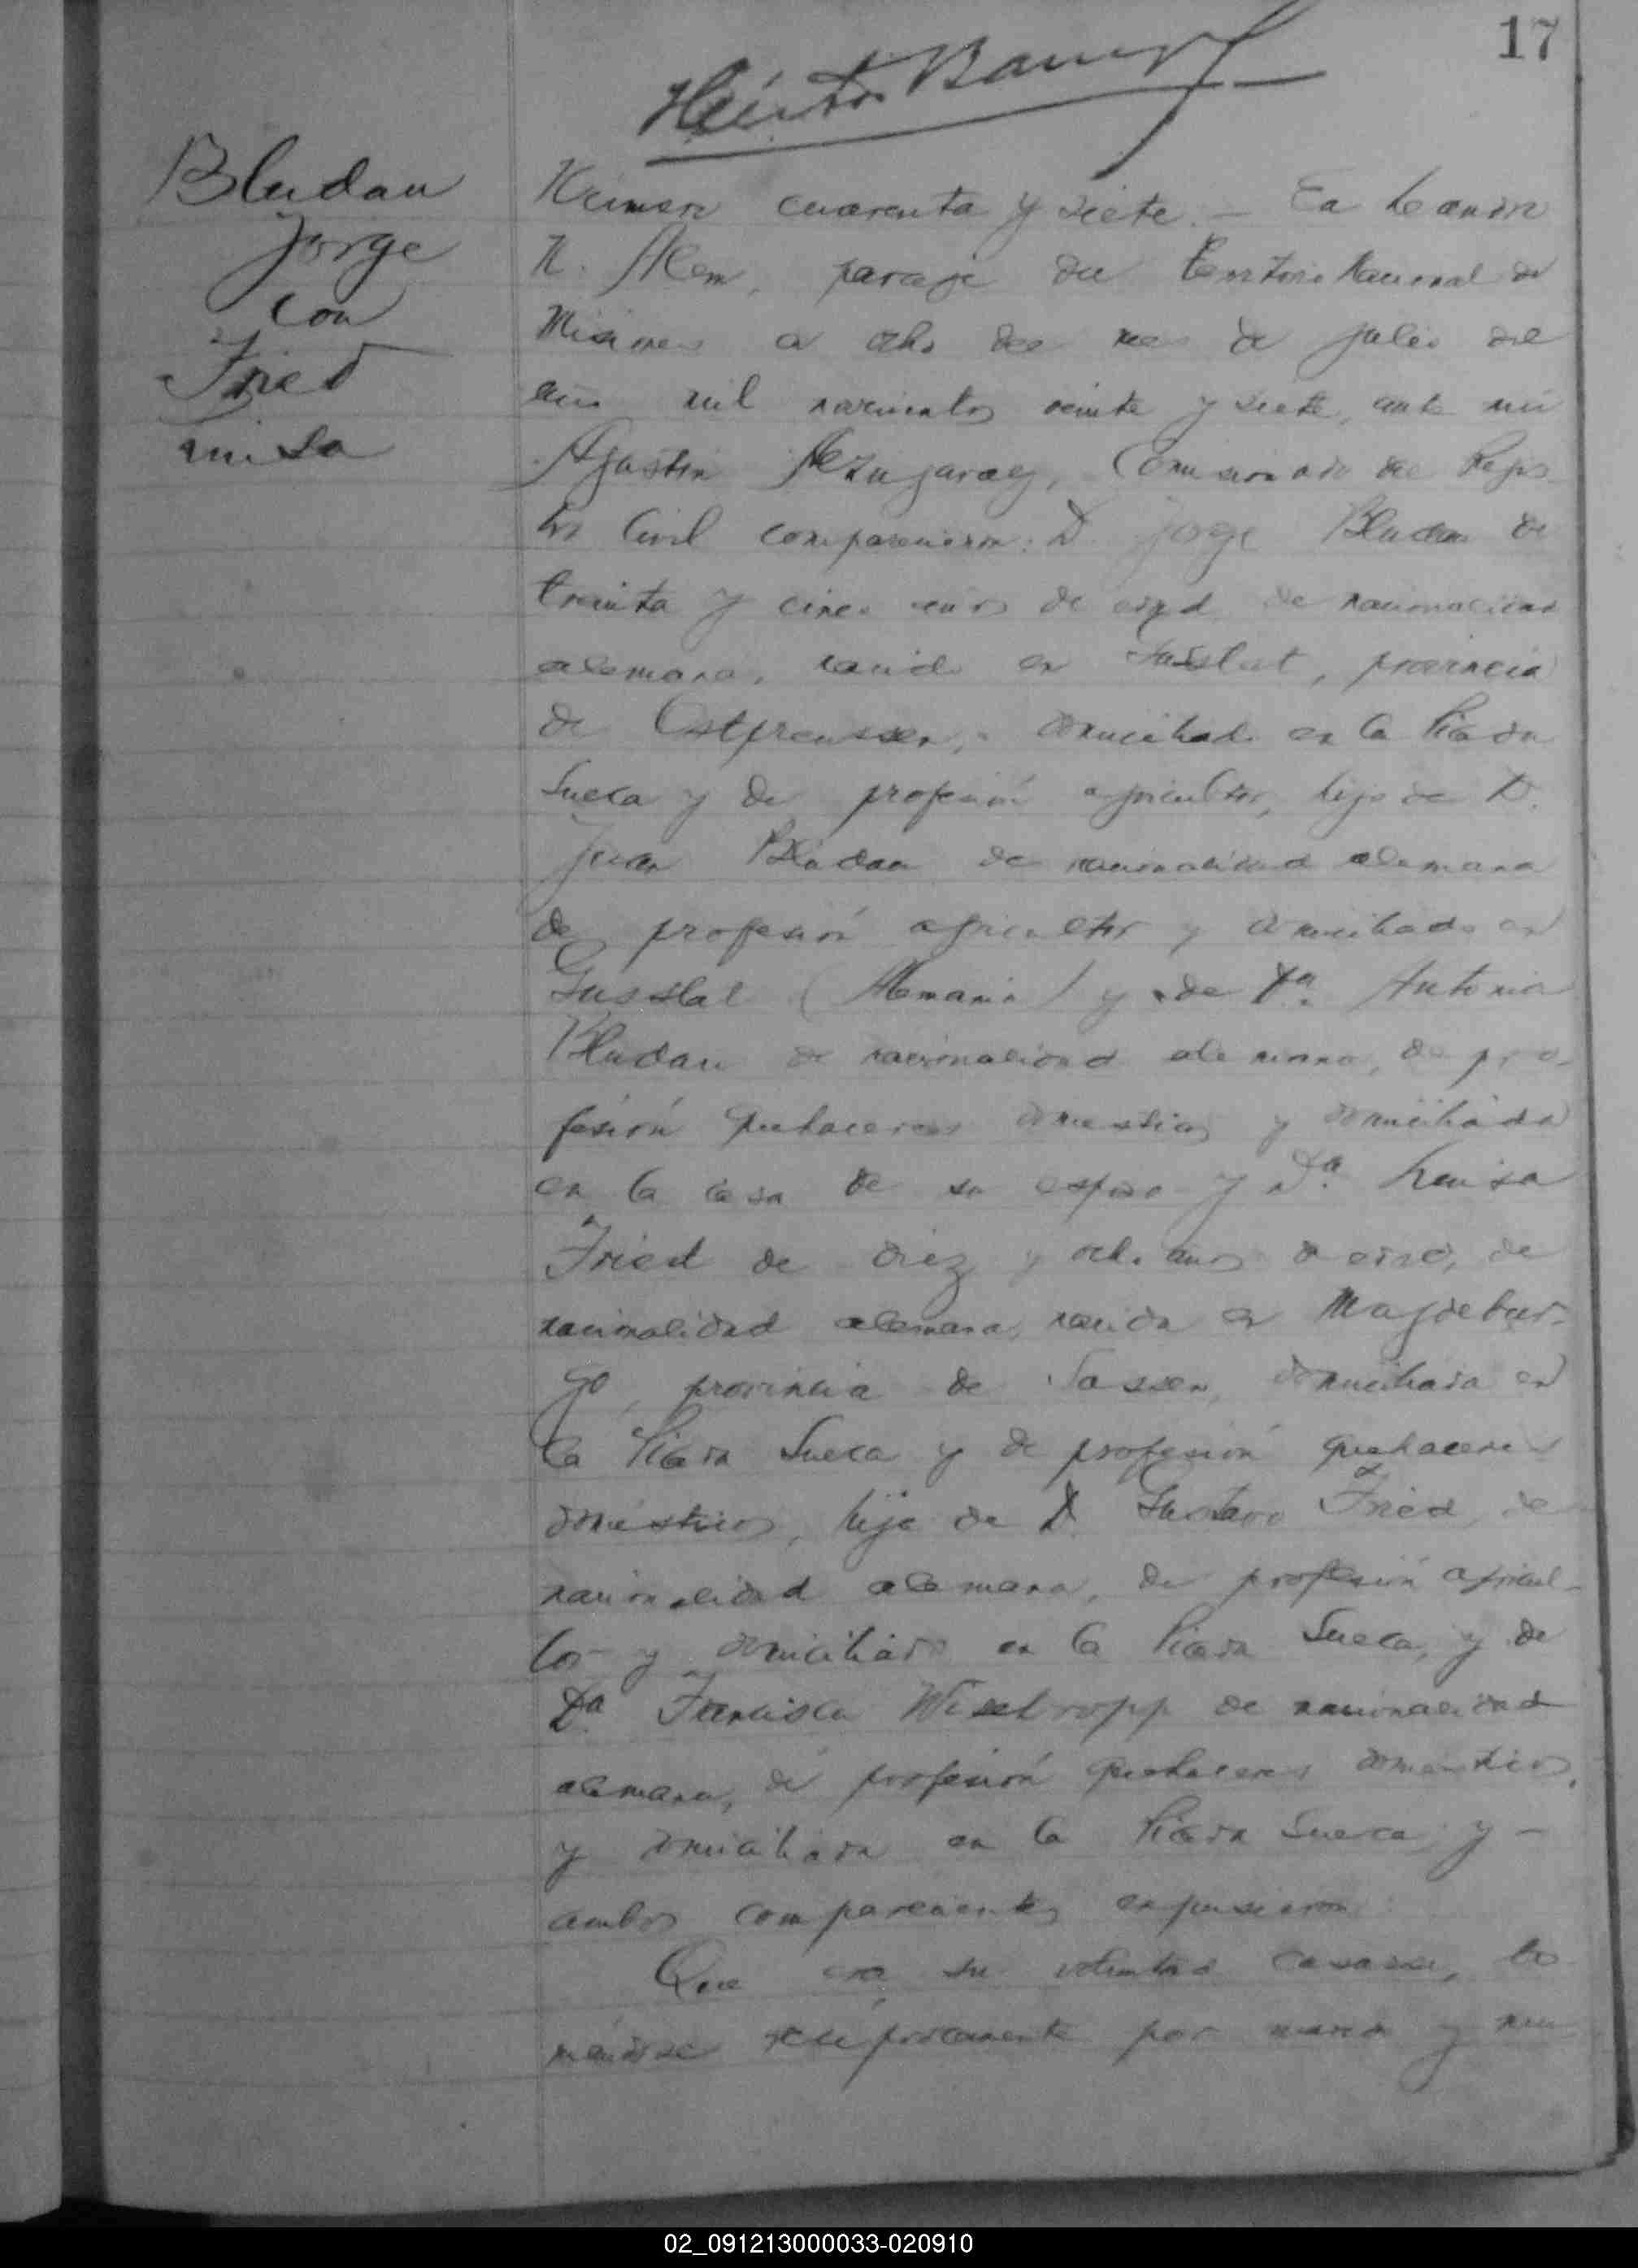 17
Héctor
Bludau
Jorge
con
Fried
Luisa
Número cuarenta y siete. — En Leandro
N. Alem, paraje del Territorio Nacional de
Misiones a ocho del mes de julio del
año mil novecientos veinte y siete, ante mí
Agustin Aezugaray, Comisionado del Regis-
tro Civil comparecieron: D. Jorge Bludau de
treinta y cinco años de edad de nacionalidad
alemana, nacido en, provincia
de Ostpreussen, domiciliado en la Picada
Sueca y de profesión agricultor, hijo de D.
Juan Bludau de nacionalidad alemana
de profesión agricultor y domiciliado en
(Alemania) y de Da. Antonia
Bludau de nacionalidad alemana, de pro-
fesión quehaceres domesticos y domiciliada
en la casa de su esposo y Da. Luisa
Fried de diez y ocho años de edad, de
nacionalidad alemana, nacida en Magdebur-
go, provincia de Sassen, domiciliada en
la Picada Sueca y de profesión quehaceres
domésticos, hija de D. Gustavo Fried, de
nacionalidad alemana, de profesión agricul-
tor y domiciliado en la Picada Sueca, y de
Da. Francisca Wisetropp de nacionalidad
alemana, de profesión quehaceres domésticos,
y domiciliada en la Picada Sueca y —
ambos comparecientes expusieron:
Que era su voluntad casarse, to-
mándose recíprocamente por marido y mu-
02_091213000033-020910